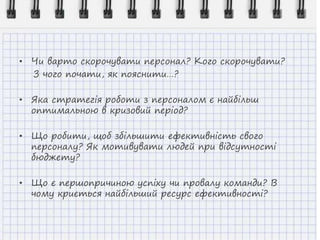 • Чи варто скорочувати персонал? Кого скорочувати?
З чого почати, як пояснити…?
• Яка стратегія роботи з персоналом є найбільш
оптимальною в кризовий період?
• Що робити, щоб збільшити ефективність свого
персоналу? Як мотивувати людей при відсутності
бюджету?
• Що є першопричиною успіху чи провалу команди? В
чому криється найбільший ресурс ефективності?